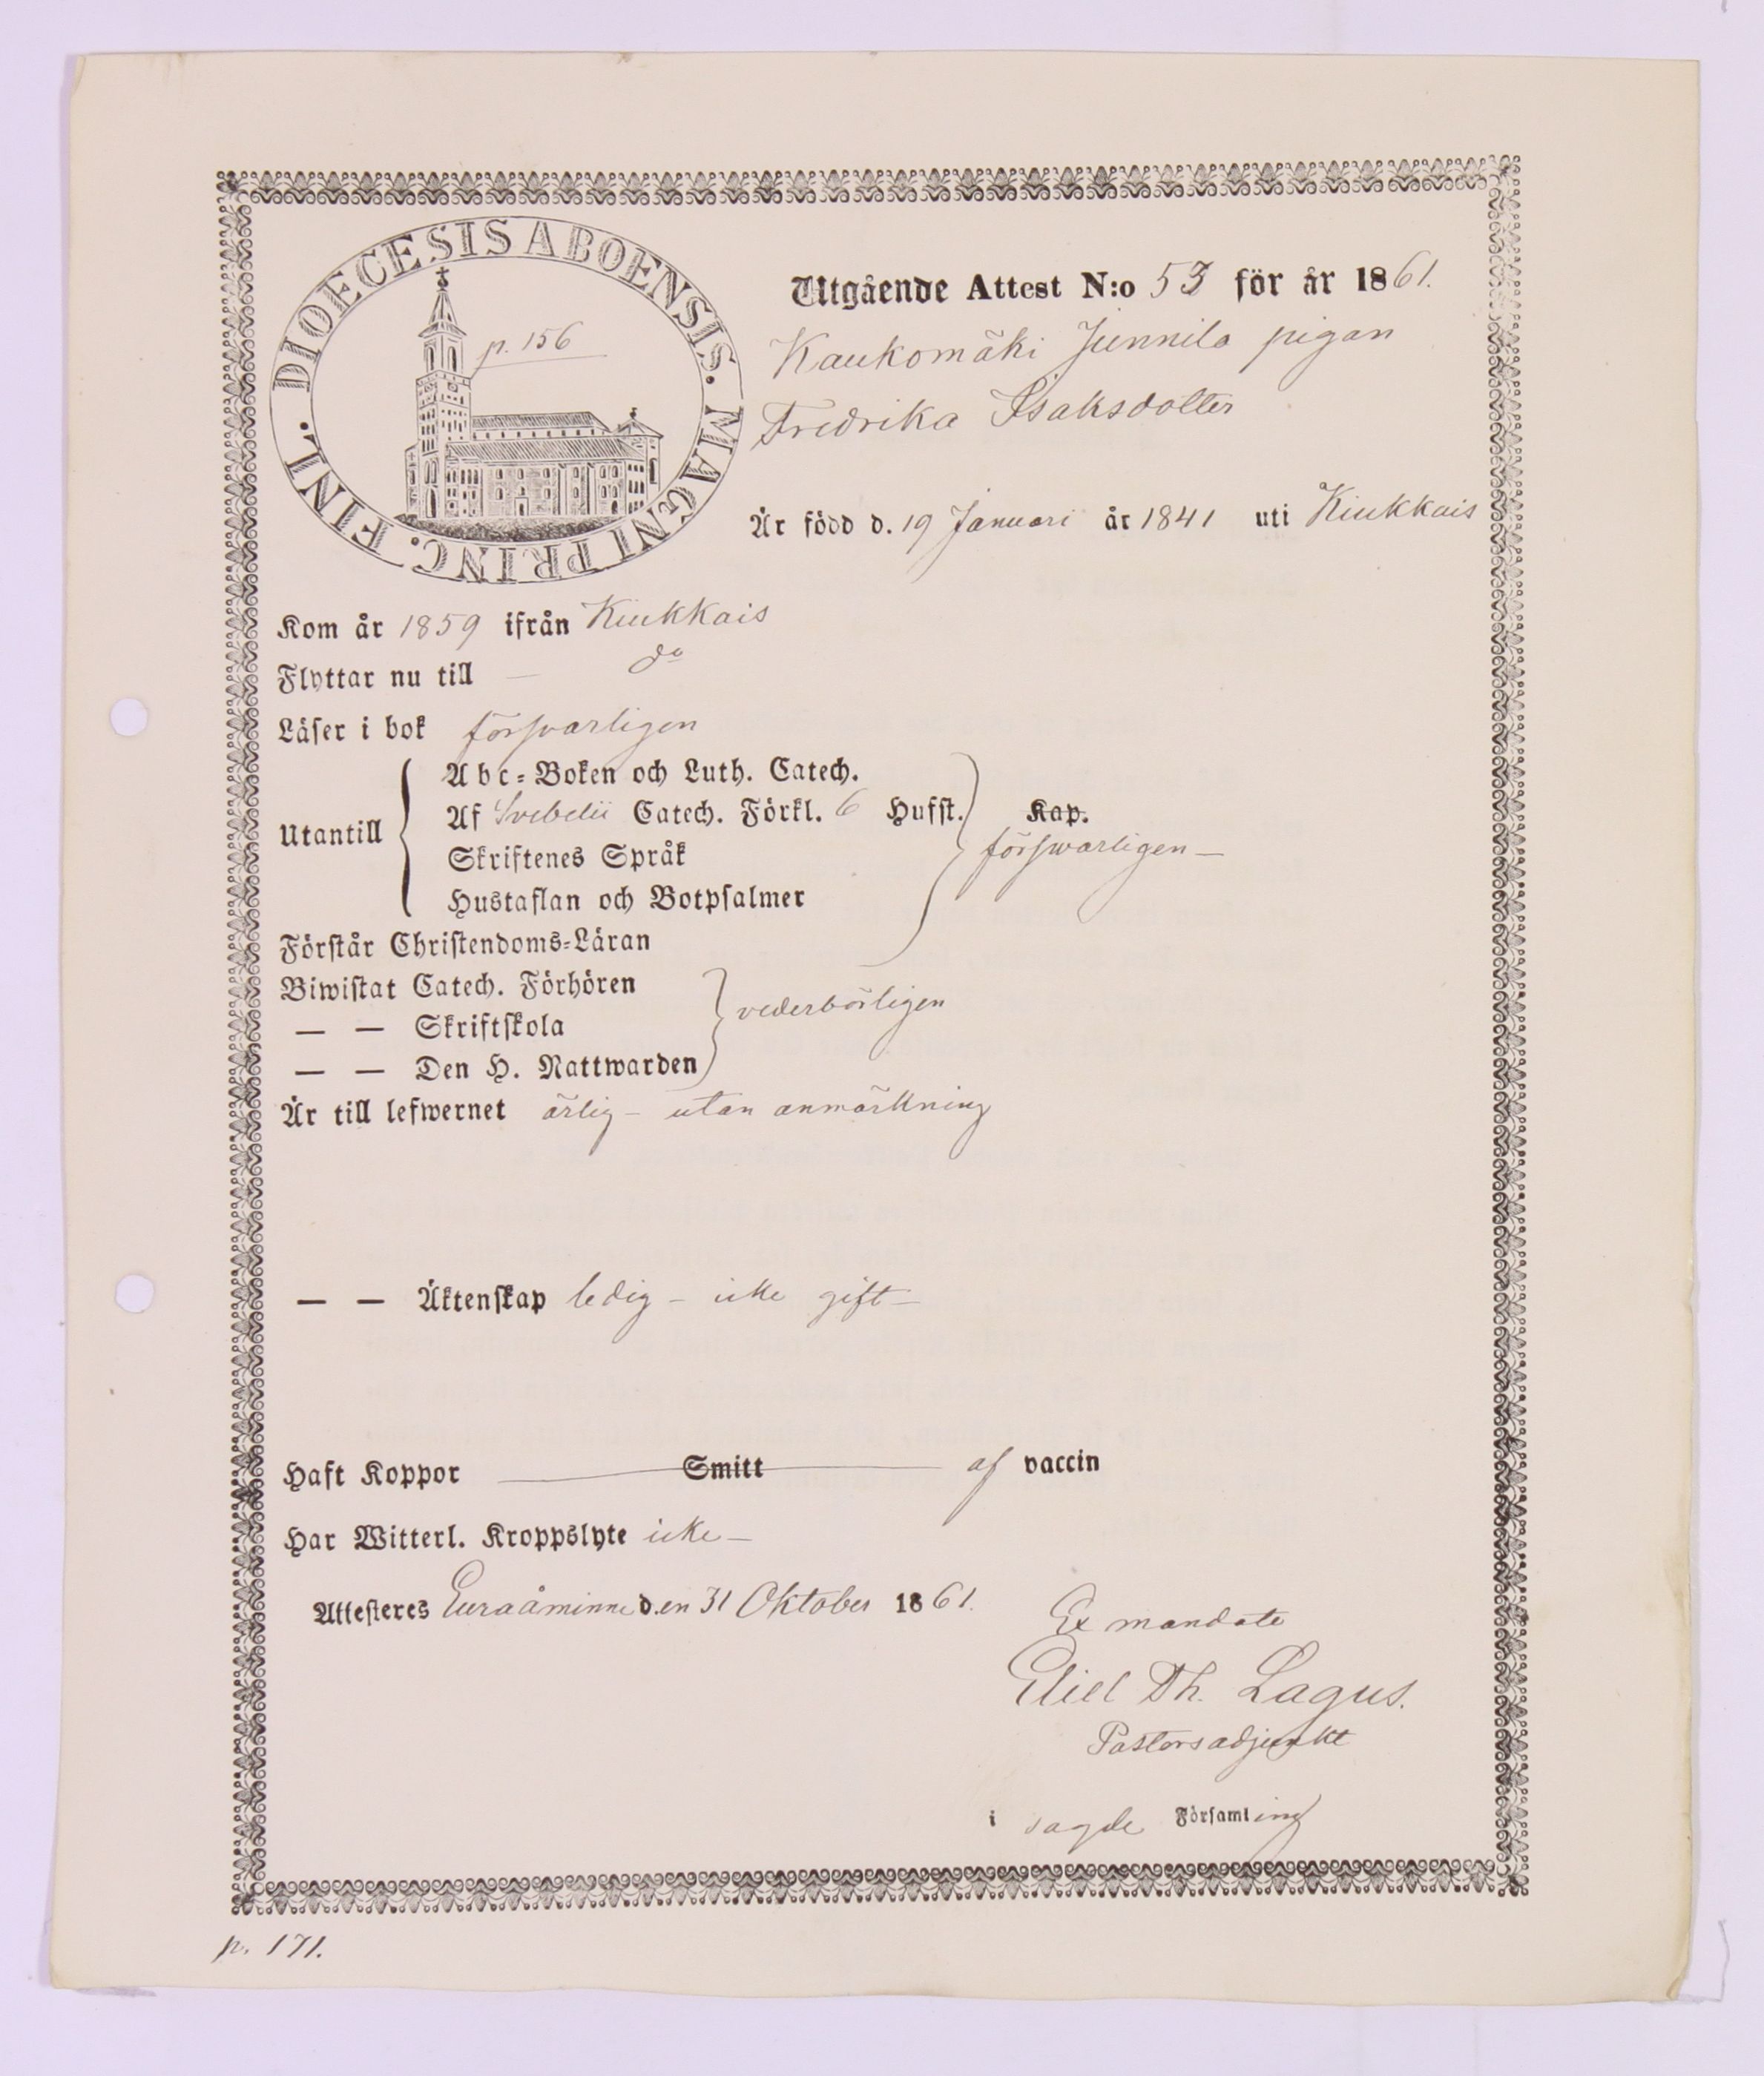 DIOECESIS ABOENSIS. MAGNI PRINC. FINL.
p. 156
Utgående Attest N:o 53 för år 1861.
Kaukomäki Junnila pigan
Fredrika Isaksdotter
Är född d. 19 Januari år 1841 uti Kiukkais
Kom år 1859 ifrån Kiukkais
Flyttar nu till — do
Läser i bok försvarligen
Utantill
Abc-Boken och Luth. Catech.
Af Svebelii Catech. Förkl. 6 Hufst. Kap.
Skriftenes Språk
försvarligen —
Hustaflan och Botpsalmer
Förstår Christendoms-Läran
Biwistat Catech. Förhören
— — Skriftskola
vederbörligen
— — Den H. Nattwarden
Är till lefwernet ärlig – utan anmärkning
— — Äktenskap ledig – icke gift –
Haft Koppor Smitt af vaccin
Har Witterl. Kroppslyte icke –
Attesteres Euraåminne d.en 31 Oktober 1861.
Ex mandato
Eliel Th. Lagus.
Pastorsadjunkt
i sagde Församling
p. 171.